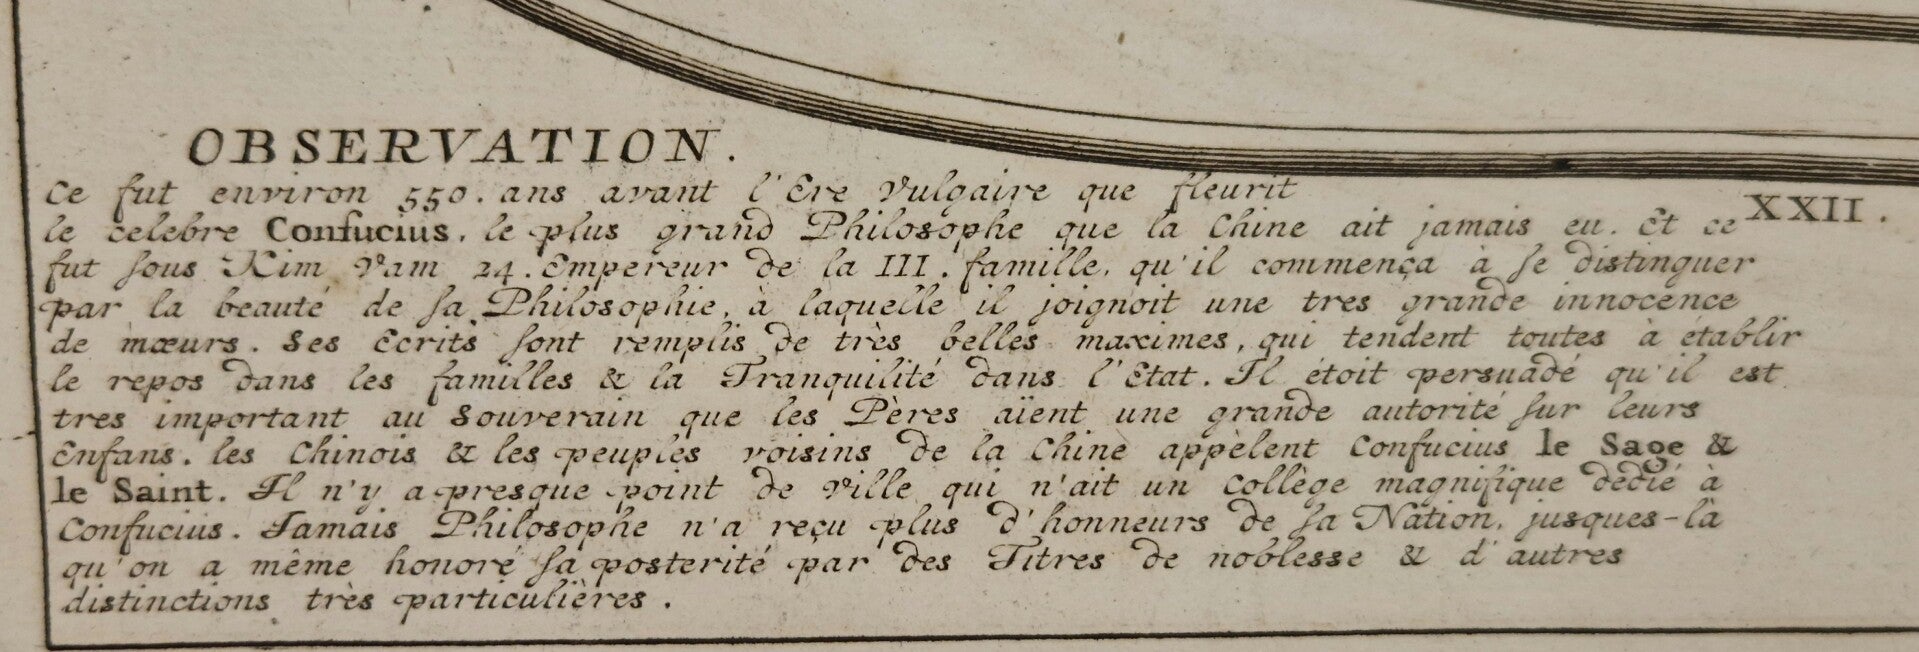 OBSERVATION.
Ce fut environ 550. ans avant l'Ere Vulgaire que fleurit
le celebre Confucius, le plus grand Philosophe que la Chine ait jamais eu. Et ce
XXII.
fut sous Kim Vam 24. Empereur de la III. famille, qu'il commença à se distinguer
par la beauté de sa Philosophie, à laquelle il joignoit une tres grande innocence
de mœurs. Ses Ecrits sont remplis de très belles maximes, qui tendent toutes à établir
le repos dans les familles & la Tranquilité dans l'Etat. Il étoit persuadé qu'il est
tres important au Souverain que les Pères aïent une grande autorité sur leurs
Enfans. les Chinois & les peuples voisins de la Chine appèlent Confucius le Sage &
le Saint. Il n'y a presque point de Ville qui n'ait un Collège magnifique dedié à
Confucius. Jamais Philosophe n'a reçu plus d'honneurs de sa Nation, jusques-là
qu'on a même honoré sa posterité par des Titres de noblesse & d'autres
distinctions très particulières.